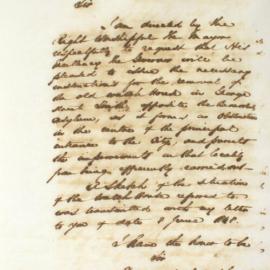 Sir
I am directed by the
Right Worshipful the Mayor
respectfully to request that His
Excellency the Governor will be
pleased to issue the necessary
instructions for the removal of
the old watch House in George
Street South, opposite the Benevolent
Asylum, as it forms an obstruction
in the centre of the principal
entrance to the City, and prevents
the improvements in that locality
from being efficiently carried out
A Sketch of the situation
of the watch House referred to
was transmitted with my letter
to you of date 8 June 1848.
I have the honor to be
Sir